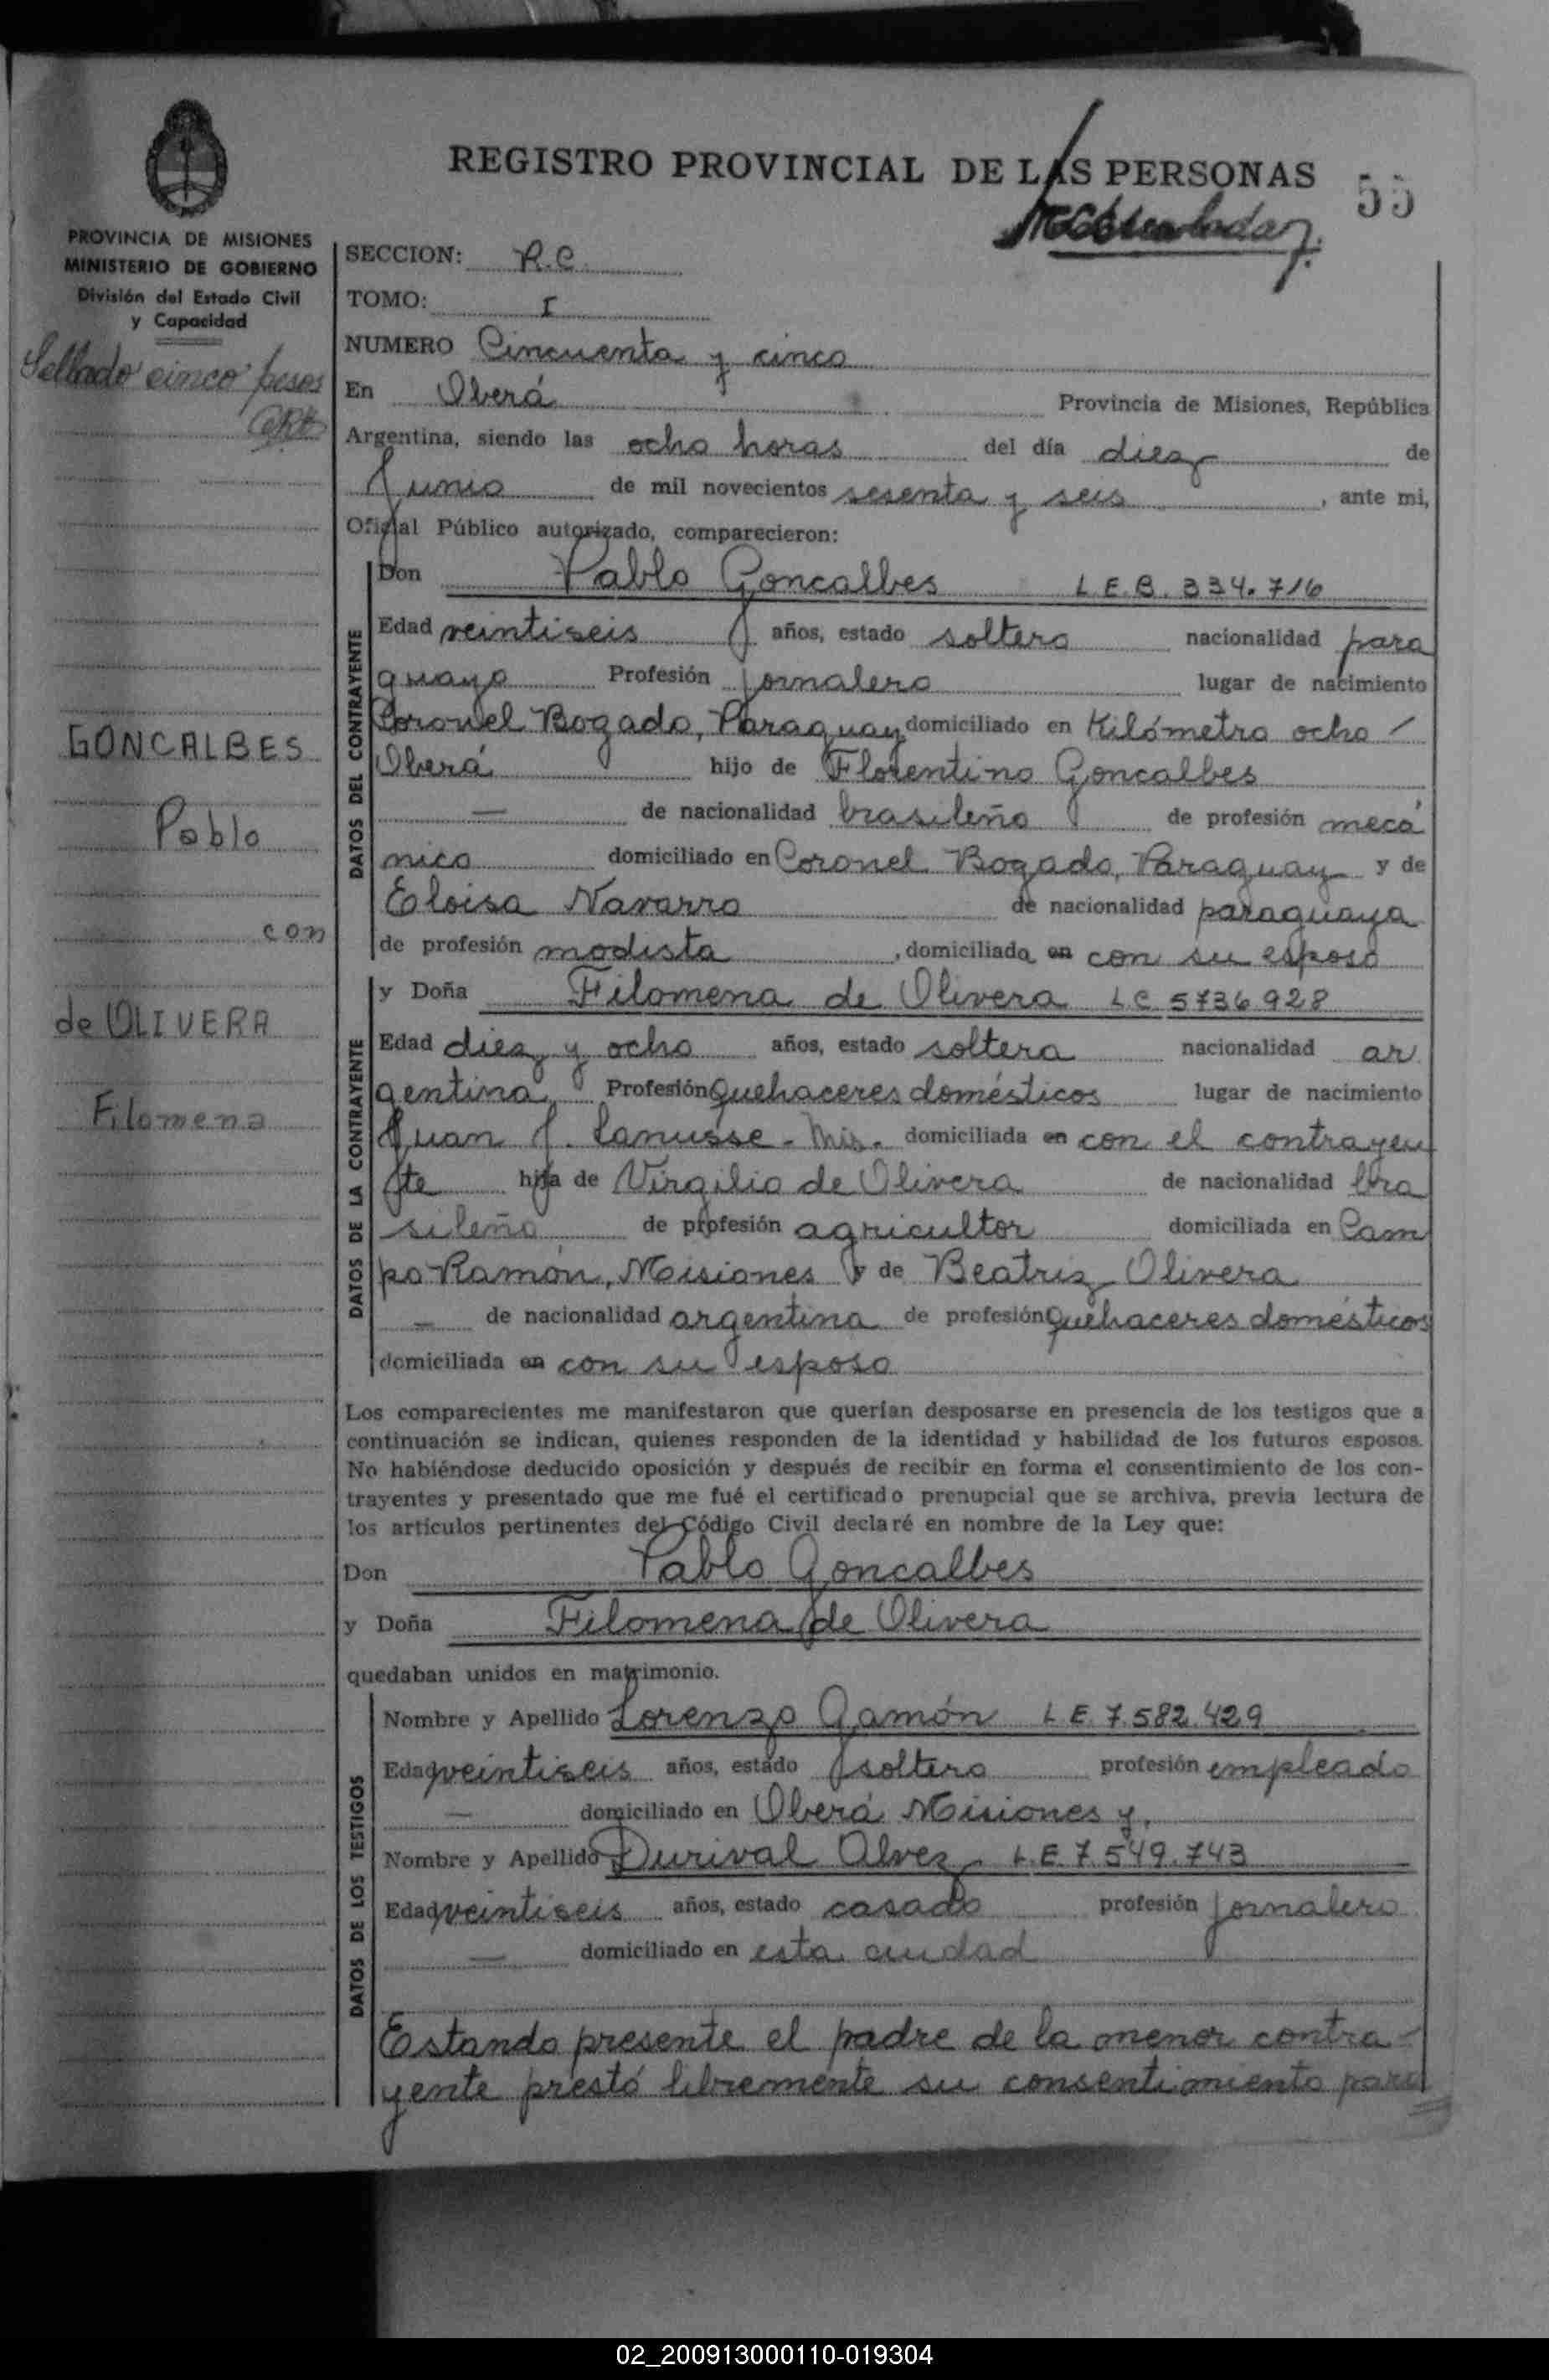 REGISTRO PROVINCIAL DE LAS PERSONAS
55
PROVINCIA DE MISIONES
MINISTERIO DE GOBIERNO
División del Estado Civil
y Capacidad
Sellado cinco pesos
GONCALBES
Pablo
con
de OLIVERA
Filomena
SECCION: R.C.
TOMO: I
NUMERO Cincuenta y cinco
En Oberá Provincia de Misiones, República
Argentina, siendo las ocho horas del día diez de
Junio de mil novecientos sesenta y seis, ante mi,
Oficial Público autorizado, comparecieron:
DATOS DEL CONTRAYENTE
Don Pablo Goncalbes L.E.B. 334.716
Edad veintiseis años, estado soltero nacionalidad para
guayo Profesión jornalero lugar de nacimiento
Coronel Bogado, Paraguay domiciliado en Kilómetro ocho /
Oberá hijo de Florentino Goncalbes
— de nacionalidad brasileño de profesión mecá
nico domiciliado en Coronel Bogado, Paraguay y de
Eloisa Navarro de nacionalidad paraguaya
de profesión modista, domiciliada en con su esposo
DATOS DE LA CONTRAYENTE
y Doña Filomena de Olivera L.C. 5736.928
Edad diez y ocho años, estado soltera nacionalidad ar
gentina Profesión Quehaceres domésticos lugar de nacimiento
Juan J. Lanusse - Mis. domiciliada en con el contrayen
te hija de Virgilio de Olivera de nacionalidad bra
sileño de profesión agricultor domiciliada en Cam
po Ramón, Misiones y de Beatriz Olivera
— de nacionalidad argentina de profesión Quehaceres domésticos
domiciliada en con su esposo
Los comparecientes me manifestaron que querían desposarse en presencia de los testigos que a
continuación se indican, quienes responden de la identidad y habilidad de los futuros esposos.
No habiéndose deducido oposición y después de recibir en forma el consentimiento de los con-
trayentes y presentado que me fué el certificado prenupcial que se archiva, previa lectura de
los artículos pertinentes del Código Civil declaré en nombre de la Ley que:
Don Pablo Goncalbes
y Doña Filomena de Olivera
quedaban unidos en matrimonio.
DATOS DE LOS TESTIGOS
Nombre y Apellido Lorenzo Gamón L.E. 7.582.429
Edad veintiseis años, estado soltero profesión empleado
— domiciliado en Oberá Misiones y,
Nombre y Apellido Durival Alvez L.E. 7.549.743
Edad veintiseis años, estado casado profesión jornalero
— domiciliado en esta ciudad
Estando presente el padre de la menor contra-
yente prestó libremente su consentimiento para
02_200913000110-019304